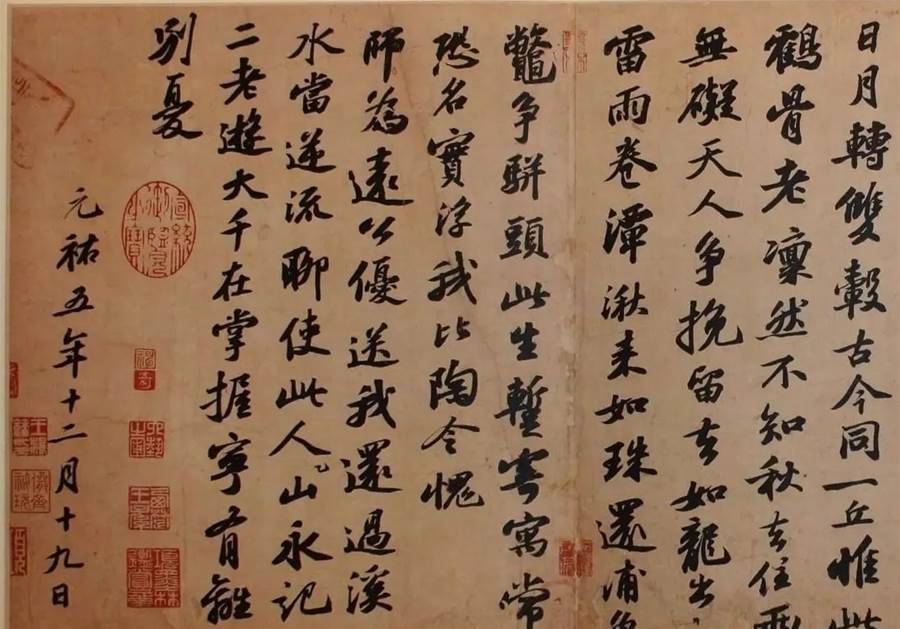 日月轉雙轂古今同一丘惟此
鶴骨老凜然不知秋去住兩
無礙天人爭挽留去如龍出
雷雨卷潭湫来如珠還浦魚
鼈爭駢頭此生暫寄寓常
恐名實浮我比陶令愧
師為遠公優送我還過溪
水當逆流聊使此人山永記
二老遊大千在掌握寧有離
別憂
元祐五年十二月十九日